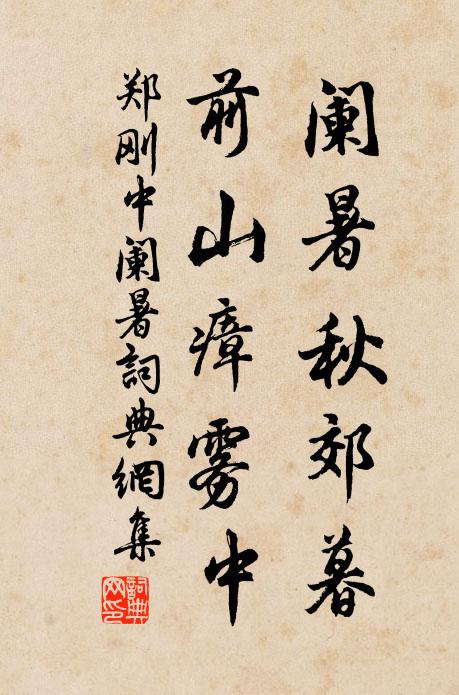 阑暑秋郊暮
前山瘴雾中
郑刚中阑暑詞典網集
詞典
网印